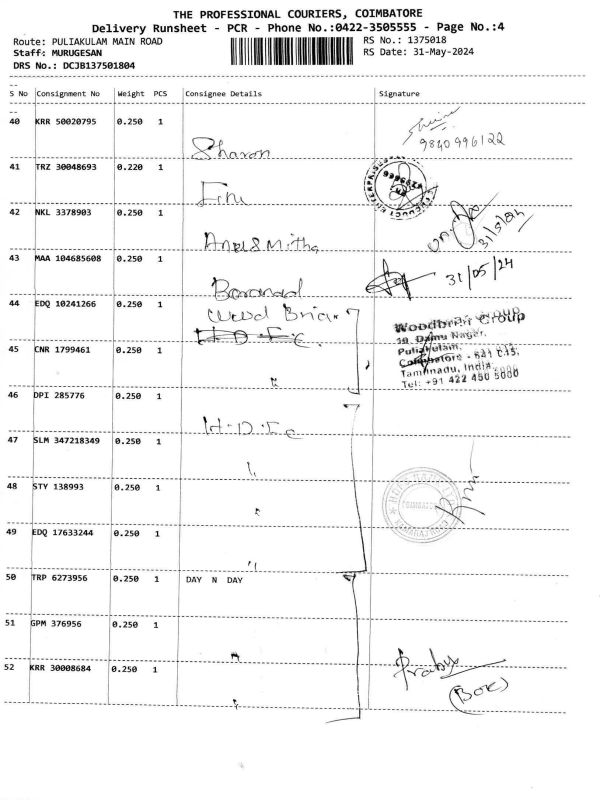 THE PROFESSIONAL COURIERS, COIMBATORE
Delivery Runsheet - PCR - Phone No.:0422-3505555 - Page No.:4
Route: PULIAKULAM MAIN ROAD
RS No.: 1375018
Staff: MURUGESAN
RS Date: 31-May-2024
DRS No.: DCJB137501804
S No Consignment No Weight PCS Consignee Details Signature
40 KRR 50020795 0.250 1
9840996122
Sharon
41 TRZ 30048693 0.220 1
42 NKL 3378903 0.250 1
31/5/24
43 MAA 104685608 0.250 1
31/05/24
44 EDQ 10241266 0.250 1
Woodbriar Group
19, Damu Nagar,
H D F C
Puliakulam,
45 CNR 1799461 0.250 1
Coimbatore - 641 045,
Tamilnadu, India
"
Tel: +91 422 450 5000
46 DPI 285776 0.250 1
H-D-F C
47 SLM 347218349 0.250 1
"
48 STY 138993 0.250 1
COIMBATORE
"
49 EDQ 17633244 0.250 1
"
50 TRP 6273956 0.250 1 DAY N DAY
51 GPM 376956 0.250 1
"
52 KRR 30008684 0.250 1
Prabu
"